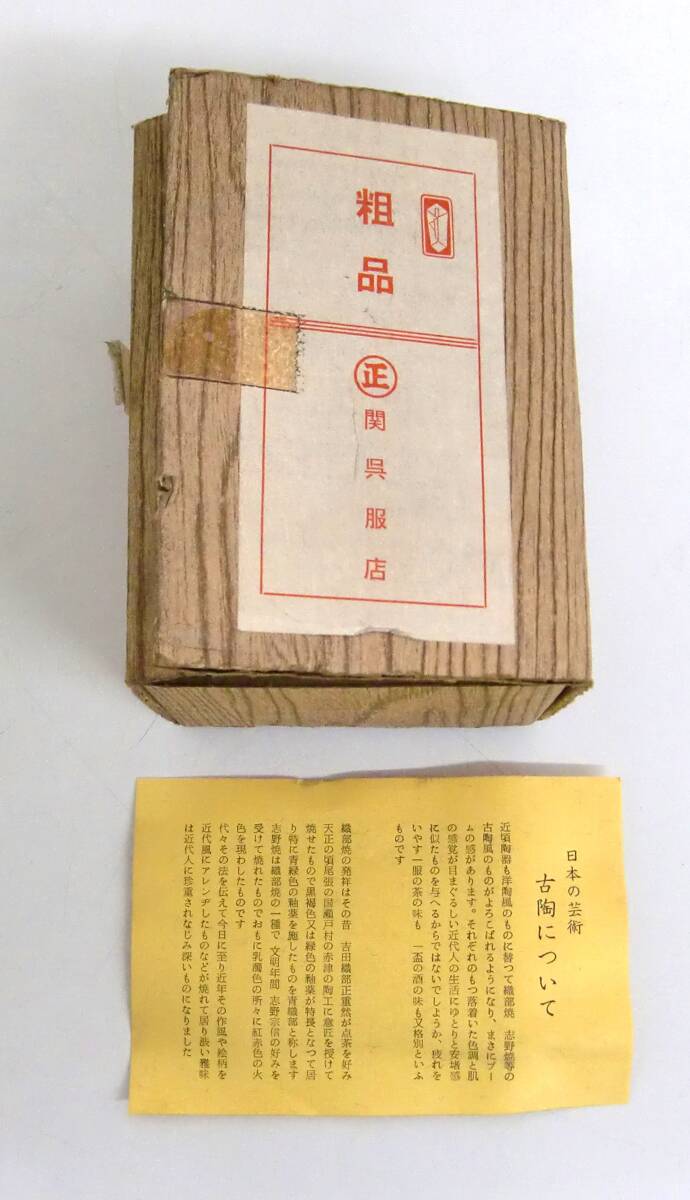 粗品
正
関呉服店
日本の芸術
古陶について
近頃陶器も洋陶風のものに替つて織部焼　志野焼等の
古陶風のものがよろこばれるようになり、まさにブー
ムの感があります。それぞれのもつ落着いた色調と肌
の感覚が目まぐるしい近代人の生活にゆとりと安堵感
に似たものを与へるからではないでしようか、疲れを
いやす一服の茶の味も　一盃の酒の味も又格別といふ
ものです
織部焼の発祥はその昔　吉田織部正重然が点茶を好み
天正の頃尾張の国瀬戸村の赤津の陶工に意匠を授けて
焼せたもので黒褐色又は緑色の釉薬が特長となつて居
り特に青緑色の釉薬を施したものを青織部と称します
志野焼は織部焼の一種で　文明年間　志野宗信の好みを
受けて焼れたものでおもに乳濁色の所々に紅赤色の火
色を現わしたものです
代々その法を伝えて今日に至り近年その作風や絵柄を
近代風にアレンヂしたものなどが焼れて居り渋い雅味
は近代人に珍重されなじみ深いものになりました